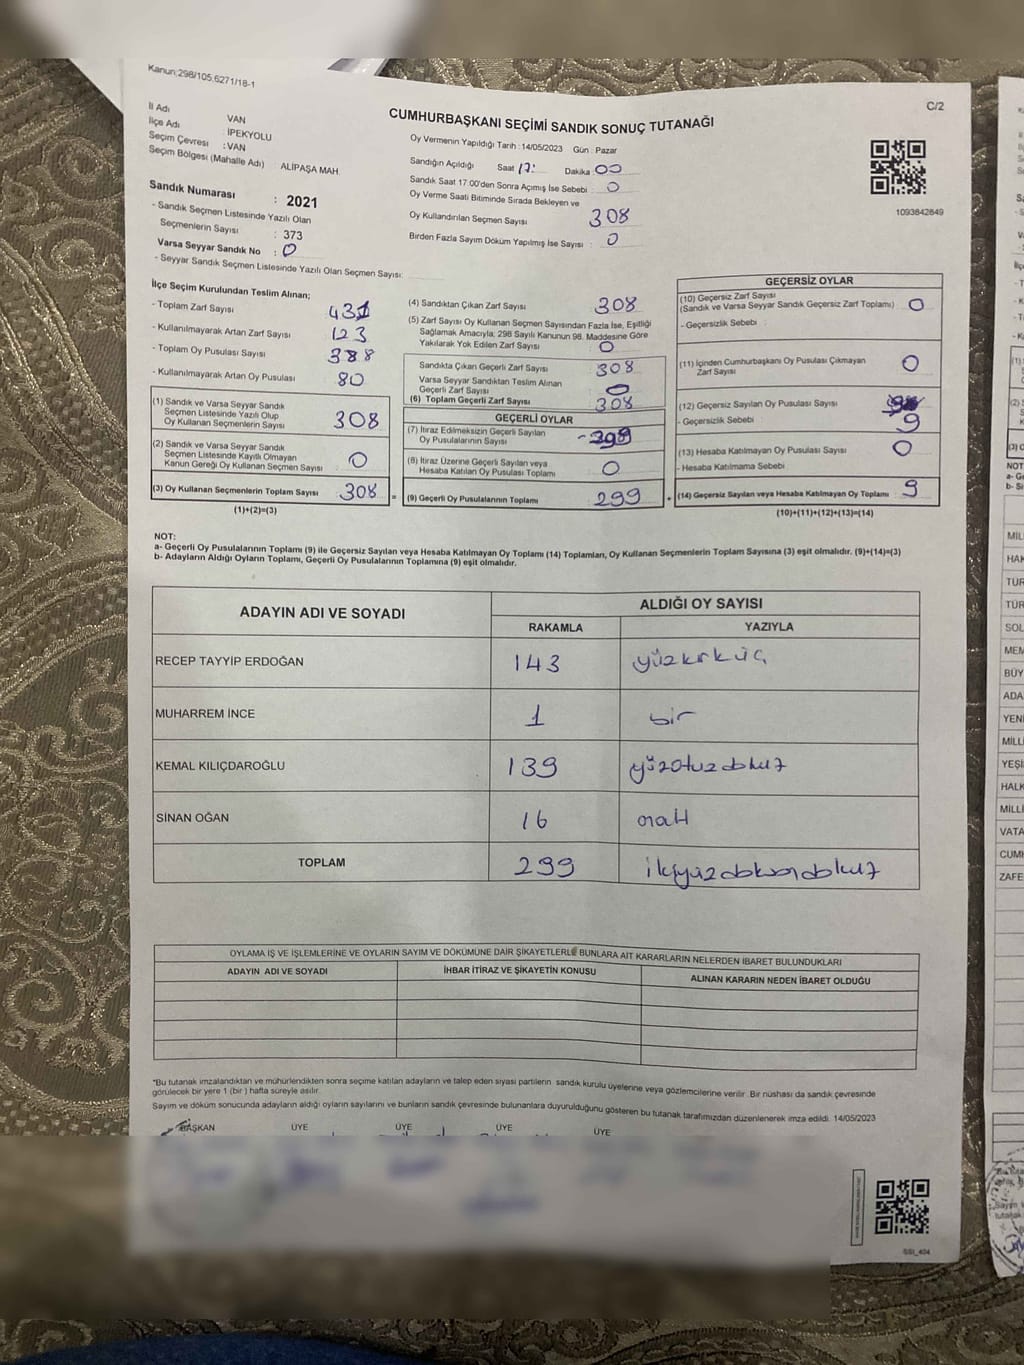 Kanun:298/105.6271/18-1
C/2
CUMHURBAŞKANI SEÇİMİ SANDIK SONUÇ TUTANAĞI
İl Adı VAN
İlçe Adı : İPEKYOLU
Seçim Çevresi : VAN
Seçim Bölgesi (Mahalle Adı) ALİPAŞA MAH.
Sandık Numarası : 2021
- Sandık Seçmen Listesinde Yazılı Olan
Seçmenlerin Sayısı : 373
Varsa Seyyar Sandık No : 0
- Seyyar Sandık Seçmen Listesinde Yazılı Olan Seçmen Sayısı:
Oy Vermenin Yapıldığı Tarih : 14/05/2023 Gün : Pazar
Sandığın Açıldığı Saat 17: Dakika 00
Sandık Saat 17:00'den Sonra Açımış İse Sebebi : 0
Oy Verme Saati Bitiminde Sırada Bekleyen ve
Oy Kullandırılan Seçmen Sayısı 308
Birden Fazla Sayım Döküm Yapılmış İse Sayısı : 0
1093842849
İlçe Seçim Kurulundan Teslim Alınan;
- Toplam Zarf Sayısı 431
- Kullanılmayarak Artan Zarf Sayısı 123
- Toplam Oy Pusulası Sayısı 388
- Kullanılmayarak Artan Oy Pusulası 80
(1) Sandık ve Varsa Seyyar Sandık
Seçmen Listesinde Yazılı Olup
Oy Kullanan Seçmenlerin Sayısı 308
(2) Sandık ve Varsa Seyyar Sandık
Seçmen Listesinde Kayıtlı Olmayan
Kanun Gereği Oy Kullanan Seçmen Sayısı 0
(3) Oy Kullanan Seçmenlerin Toplam Sayısı 308 =
(1)+(2)=(3)
(4) Sandıktan Çıkan Zarf Sayısı 308
(5) Zarf Sayısı Oy Kullanan Seçmen Sayısından Fazla İse, Eşitliği
Sağlamak Amacıyla; 298 Sayılı Kanunun 98. Maddesine Göre
Yakılarak Yok Edilen Zarf Sayısı 0
Sandıkta Çıkan Geçerli Zarf Sayısı 308
Varsa Seyyar Sandıktan Teslim Alınan
Geçerli Zarf Sayısı 0
(6) Toplam Geçerli Zarf Sayısı 308
GEÇERLİ OYLAR
(7) İtiraz Edilmeksizin Geçerli Sayılan
Oy Pusulalarının Sayısı 299
(8) İtiraz Üzerine Geçerli Sayılan veya
Hesaba Katılan Oy Pusulası Toplamı 0
(9) Geçerli Oy Pusulalarının Toplamı 299 +
GEÇERSİZ OYLAR
(10) Geçersiz Zarf Sayısı
(Sandık ve Varsa Seyyar Sandık Geçersiz Zarf Toplamı) 0
- Geçersizlik Sebebi :
(11) İçinden Cumhurbaşkanı Oy Pusulası Çıkmayan
Zarf Sayısı 0
(12) Geçersiz Sayılan Oy Pusulası Sayısı
- Geçersizlik Sebebi : 9
(13) Hesaba Katılmayan Oy Pusulası Sayısı 0
- Hesaba Katılmama Sebebi
(14) Geçersiz Sayılan veya Hesaba Katılmayan Oy Toplamı : 9
(10)+(11)+(12)+(13)=(14)
NOT:
a- Geçerli Oy Pusulalarının Toplamı (9) ile Geçersiz Sayılan veya Hesaba Katılmayan Oy Toplamı (14) Toplamları, Oy Kullanan Seçmenlerin Toplam Sayısına (3) eşit olmalıdır. (9)+(14)=(3)
b- Adayların Aldığı Oyların Toplamı, Geçerli Oy Pusulalarının Toplamına (9) eşit olmalıdır.
ADAYIN ADI VE SOYADI ALDIĞI OY SAYISI
RAKAMLA YAZIYLA
RECEP TAYYİP ERDOĞAN 143 yüzkırküç
MUHARREM İNCE 1 bir
KEMAL KILIÇDAROĞLU 139 yüzotuzdokuz
SİNAN OĞAN 16 onaltı
TOPLAM 299 ikiyüzdoksandokuz
OYLAMA İŞ VE İŞLEMLERİNE VE OYLARIN SAYIM VE DÖKÜMÜNE DAİR ŞİKAYETLERLE BUNLARA AİT KARARLARIN NELERDEN İBARET BULUNDUKLARI
ADAYIN ADI VE SOYADI İHBAR İTİRAZ VE ŞİKAYETİN KONUSU ALINAN KARARIN NEDEN İBARET OLDUĞU
*Bu tutanak imzalandıktan ve mühürlendikten sonra seçime katılan adayların ve talep eden siyasi partilerin sandık kurulu üyelerine veya gözlemcilerine verilir. Bir nüshası da sandık çevresinde
görülecek bir yere 1 (bir ) hafta süreyle asılır.
Sayım ve döküm sonucunda adayların aldığı oyların sayılarını ve bunların sandık çevresinde bulunanlara duyurulduğunu gösteren bu tutanak tarafımızdan düzenlenerek imza edildi. 14/05/2023
BAŞKAN ÜYE ÜYE ÜYE ÜYE
SSI_404
MİL
HAK
TÜR
TÜR
SOL
MEM
BÜY
ADA
YENİ
MİLLİ
YEŞİ
HALK
MİLLİ
VATA
CUMH
ZAFE